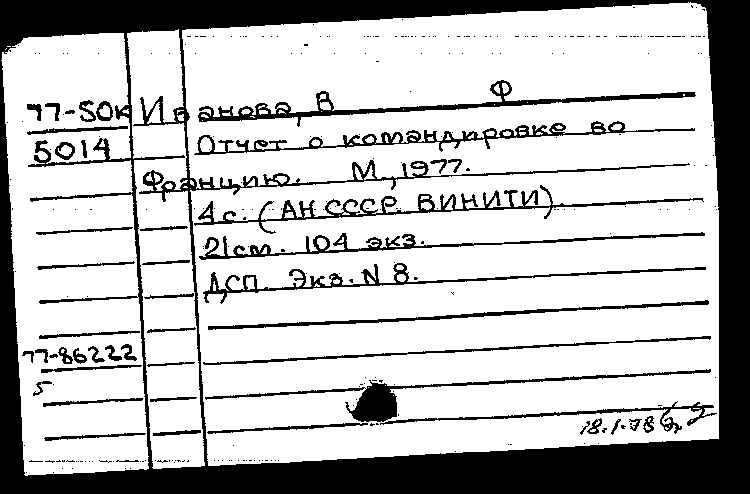 77-50к Иванова, В Ф
5014 Отчет о командировке во
Францию. М., 1977.
4 с. (АН СССР. ВИНИТИ).
21 см. 104 экз.
ДСП. Экз. N 8.
77-86222
5
18.1.78